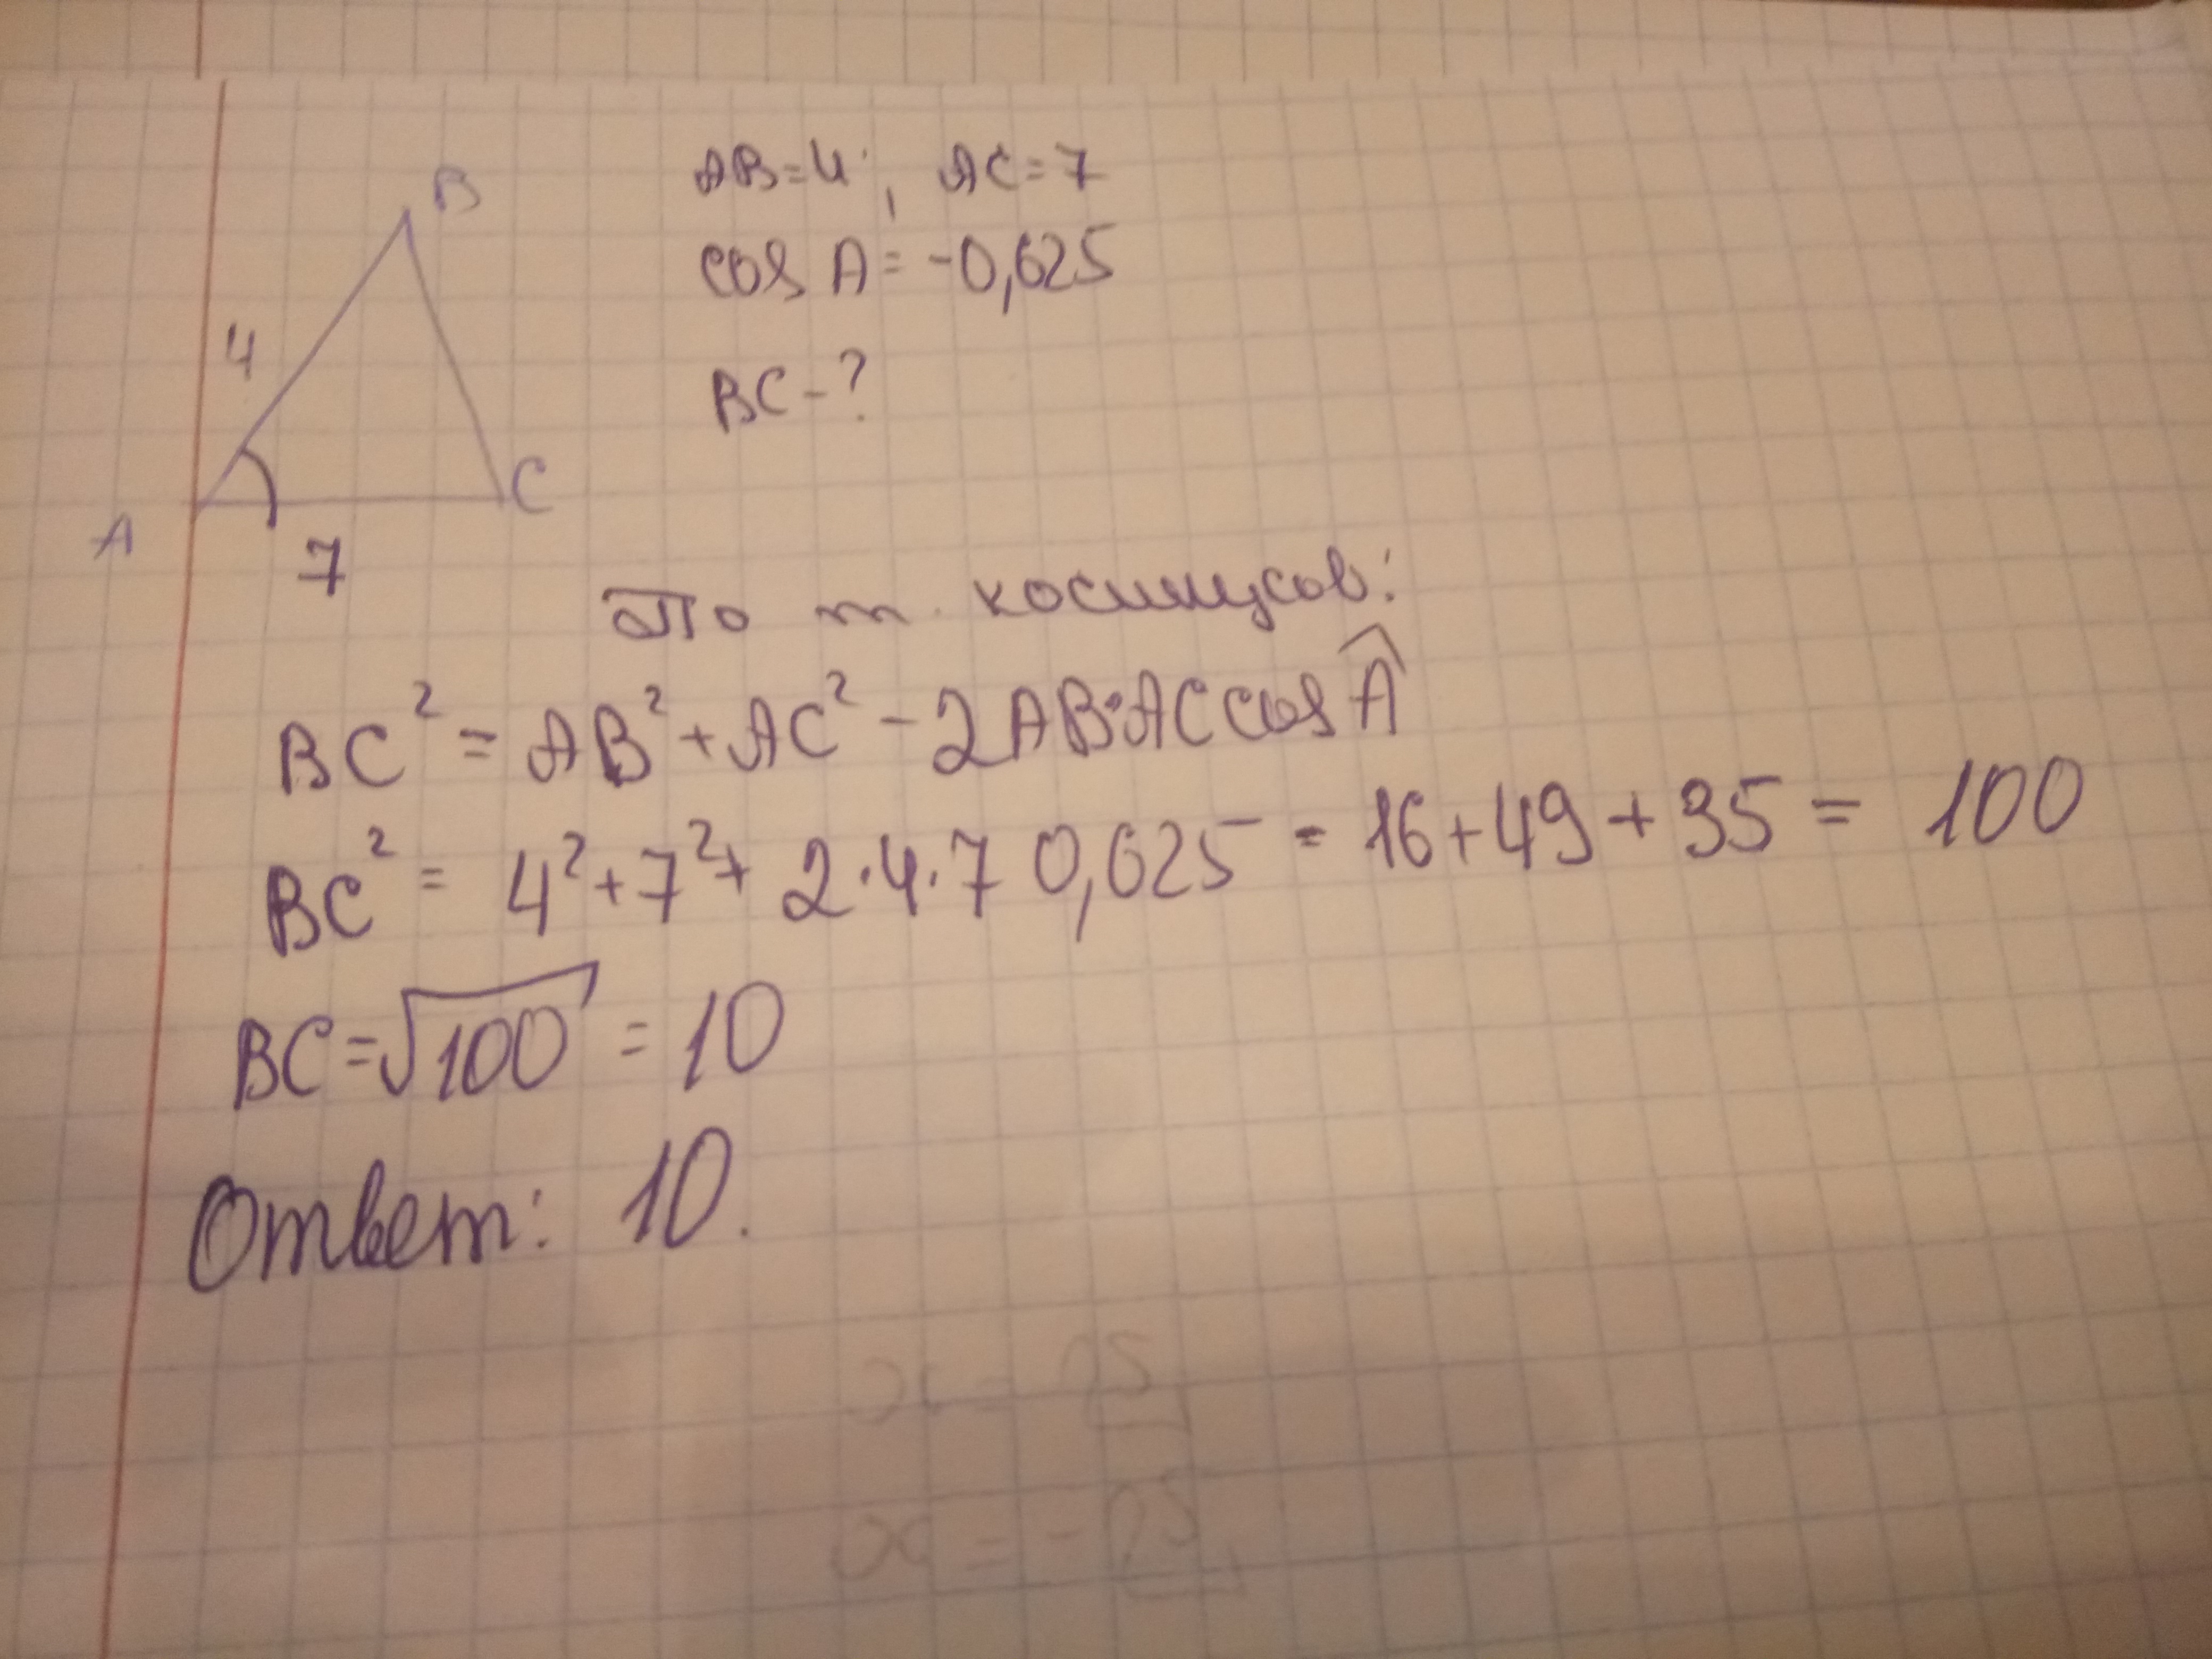 B
AB=4; AC=7
cos A = -0,625
4
BC-?
C
A
7
По т. косинусов:
BC² = AB² + AC² - 2AB·AC cos Â
BC² = 4² + 7² + 2·4·7 0,625 = 16+49+35 = 100
BC = √100 = 10
Ответ: 10.